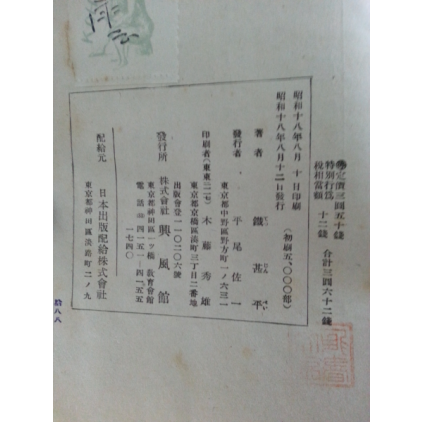 定價三圓五十錢
特別行爲税相當額 十二錢
合計三圓六十二錢
昭和十八年八月十日印刷
昭和十八年八月十二日發行
(初刷五、〇〇〇部)
著者 鐵甚平
發行者 平尾佐一
東京都中野區野方町一ノ六三一
印刷者(東東二二七) 木藤秀雄
東京都京橋區湊町三丁目二番地
出版會登一一〇二〇六號
發行所 株式會社 興風館
東京都神田區一ツ橋教育會館
配給元 日本出版配給株式會社
東京都神田區淡路町二ノ九